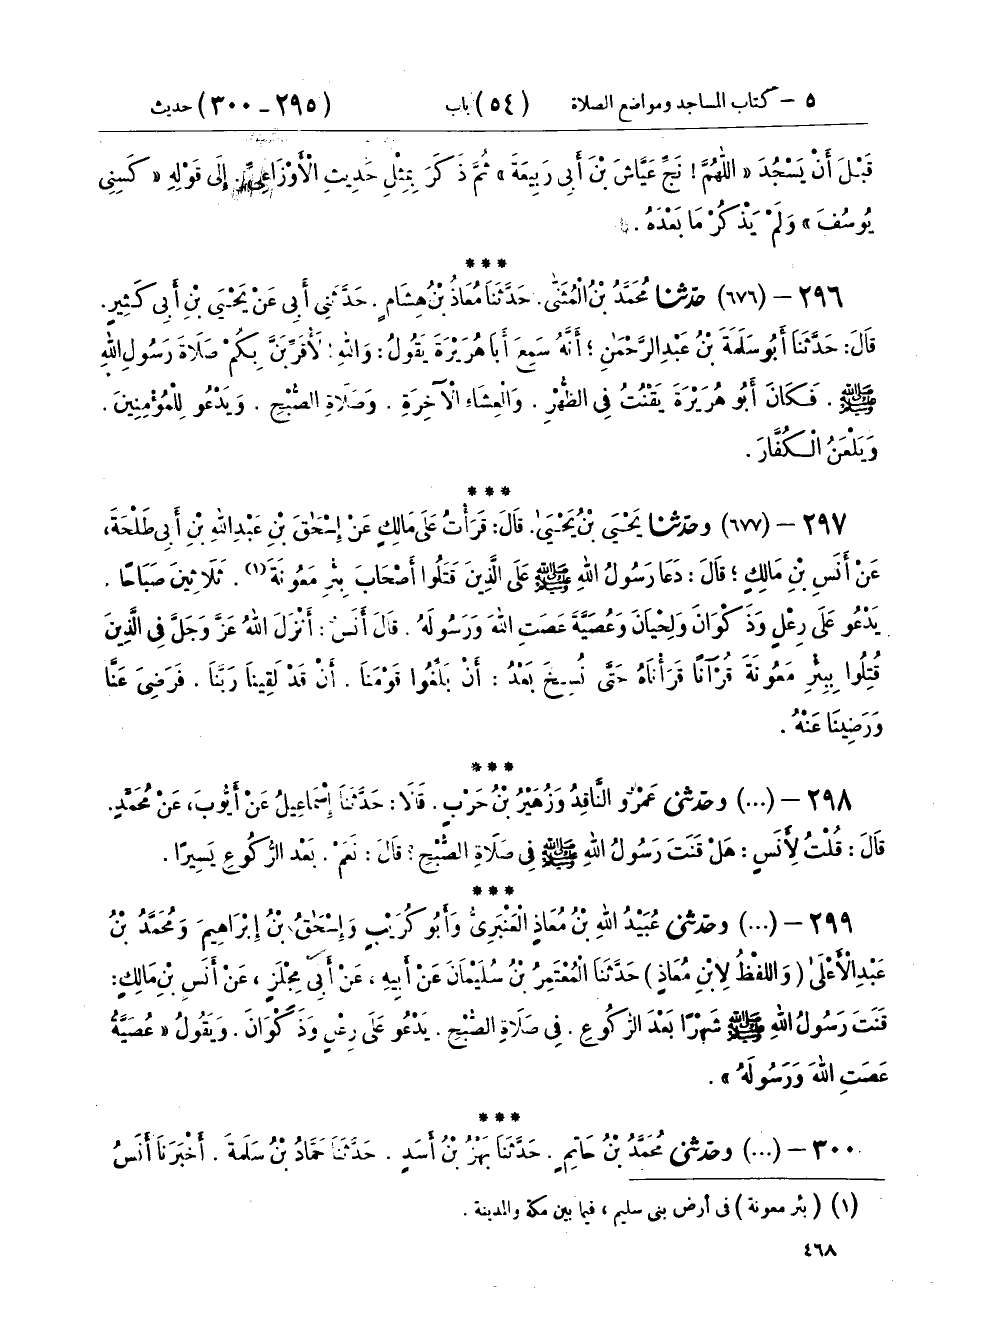 ٥ – كتاب المساجد ومواضع الصلاة (٥٤) باب (٢٩٥ – ٣٠٠) حديث
قَبْلَ أَنْ يَسْجُدَ « اللَّهُمَّ ! نَجِّ عَيَّاشَ بْنَ أَبِي رَبِيعَةَ » ثُمَّ ذَكَرَ بِمِثْلِ حَدِيثِ الْأَوْزَاعِيِّ. إِلَى قَوْلِهِ « كَسِنِي
يُوسُفَ » وَلَمْ يَذْكُرْ مَا بَعْدَهُ .
***
٢٩٦ – (٦٧٦) حَدَّثَنَا مُحَمَّدُ بْنُ الْمُثَنَّى. حَدَّثَنَا مُعَاذُ بْنُ هِشَامٍ. حَدَّثَنِي أَبِي عَنْ يَحْيَى بْنِ أَبِي كَثِيرٍ.
قَالَ: حَدَّثَنَا أَبُو سَلَمَةَ بْنُ عَبْدِ الرَّحْمٰنِ ؛ أَنَّهُ سَمِعَ أَبَا هُرَيْرَةَ يَقُولُ: وَاللهِ! لَأُقَرِّبَنَّ بِكُمْ صَلَاةَ رَسُولِ اللهِ
ﷺ . فَكَانَ أَبُو هُرَيْرَةَ يَقْنُتُ فِي الظُّهْرِ . وَالْعِشَاءِ الْآخِرَةِ . وَصَلَاةِ الصُّبْحِ . وَيَدْعُو لِلْمُؤْمِنِينَ .
وَيَلْعَنُ الْكُفَّارَ .
***
٢٩٧ – (٦٧٧) وحَدَّثَنَا يَحْيَى بْنُ يَحْيَىٰ. قَالَ: قَرَأْتُ عَلَى مَالِكٍ عَنْ إِسْحٰقَ بْنِ عَبْدِ اللهِ بْنِ أَبِي طَلْحَةَ،
عَنْ أَنَسِ بْنِ مَالِكٍ ؛ قَالَ : دَعَا رَسُولُ اللهِ ﷺ عَلَى الَّذِينَ قَتَلُوا أَصْحَابَ بِئْرِ مَعُونَةَ(١) . ثَلَاثِينَ صَبَاحًا .
يَدْعُو عَلَى رِعْلٍ وَذَكْوَانَ وَلِحْيَانَ وَعُصَيَّةَ عَصَتِ اللهَ وَرَسُولَهُ . قَالَ أَنَسٌ : أَنْزَلَ اللهُ عَزَّ وَجَلَّ فِي الَّذِينَ
قُتِلُوا بِبِئْرِ مَعُونَةَ قُرْآنًا قَرَأْنَاهُ حَتَّى نُسِخَ بَعْدُ : أَنْ بَلِّغُوا قَوْمَنَا . أَنْ قَدْ لَقِينَا رَبَّنَا . فَرَضِيَ عَنَّا
وَرَضِينَا عَنْهُ .
***
٢٩٨ – (...) وحَدَّثَنِي عَمْرٌو النَّاقِدُ وَزُهَيْرُ بْنُ حَرْبٍ . قَالَا : حَدَّثَنَا إِسْمَاعِيلُ عَنْ أَيُّوبَ، عَنْ مُحَمَّدٍ.
قَالَ : قُلْتُ لِأَنَسٍ : هَلْ قَنَتَ رَسُولُ اللهِ ﷺ فِي صَلَاةِ الصُّبْحِ؟ قَالَ : نَعَمْ . بَعْدَ الرُّكُوعِ يَسِيرًا .
***
٢٩٩ – (...) وحَدَّثَنِي عُبَيْدُ اللهِ بْنُ مُعَاذٍ الْعَنْبَرِيُّ وَأَبُو كُرَيْبٍ وَإِسْحٰقُ بْنُ إِبْرَاهِيمَ وَمُحَمَّدُ بْنُ
عَبْدِ الْأَعْلَىٰ ( وَاللَّفْظُ لِابْنِ مُعَاذٍ ) حَدَّثَنَا الْمُعْتَمِرُ بْنُ سُلَيْمَانَ عَنْ أَبِيهِ ، عَنْ أَبِي مِجْلَزٍ ، عَنْ أَنَسِ بْنِ مَالِكٍ:
قَنَتَ رَسُولُ اللهِ ﷺ شَهْرًا بَعْدَ الرُّكُوعِ . فِي صَلَاةِ الصُّبْحِ . يَدْعُو عَلَى رِعْلٍ وَذَكْوَانَ . وَيَقُولُ « عُصَيَّةُ
عَصَتِ اللهَ وَرَسُولَهُ » .
***
٣٠٠ – (...) وحَدَّثَنِي مُحَمَّدُ بْنُ حَاتِمٍ . حَدَّثَنَا بَهْزُ بْنُ أَسَدٍ . حَدَّثَنَا حَمَّادُ بْنُ سَلَمَةَ . أَخْبَرَنَا أَنَسُ
(١) ( بئر معونة ) فى أرض بنى سليم ، فيما بين مكة والمدينة .
٤٦٨